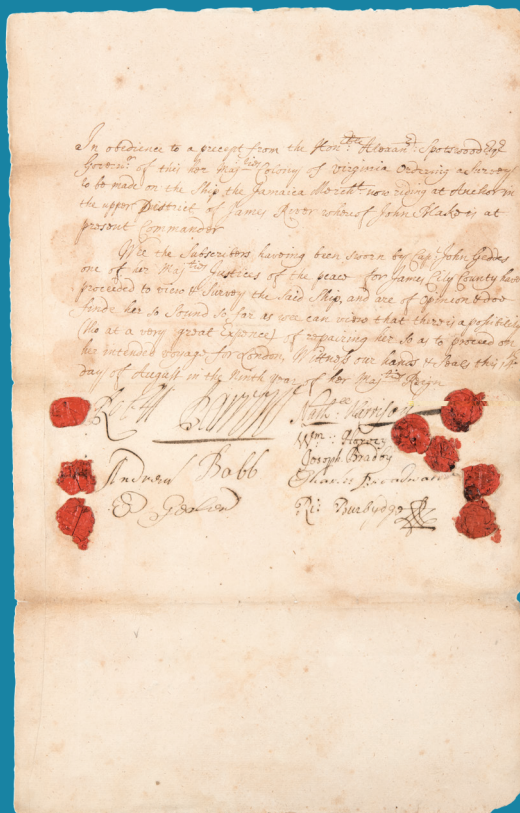 In obedience to a precept from the Hon.ble Alexan.d Spotswood Esq.r
Govern.r of this her Maj.ties Colony of Virginia Ordering a Survey
to be made on the Ship the Jamaica Merch.t now riding at Anchor in
the upper District of James River whereof John Blake is at
present Commander
Wee the Subscribers having been sworn by Cap.t John Geddes
one of her Maj.ties Justices of the peace for James City County have
proceeded to view & Survey the Said Ship, and are of Opinion & doe
finde her so Sound so far as wee can view that there is a possibility
(tho at a very great Expence) of repairing her so as to proceed on
her intended voyage for London, Witness our hands & Seals this
day of August in the Ninth year of her Maj.ties Reign
Nath: Harrison
Wm: Harvey
Joseph Bradby
Andrew Babb Charles
Ri: Burbydge